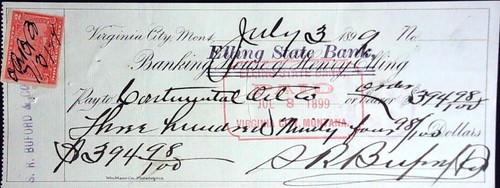 Virginia City, Mont. July 3 1899 No
Elling State Bank.
Banking House of Henry Elling
Pay to Continental Oil Co or order bearer $394 98/100
Three hundred Ninety four 98/100 Dollars
$394 98/100
S R Buford & Co
PAID
JUL 8 1899
VIRGINIA CITY, MONTANA.
S. R. BUFORD &